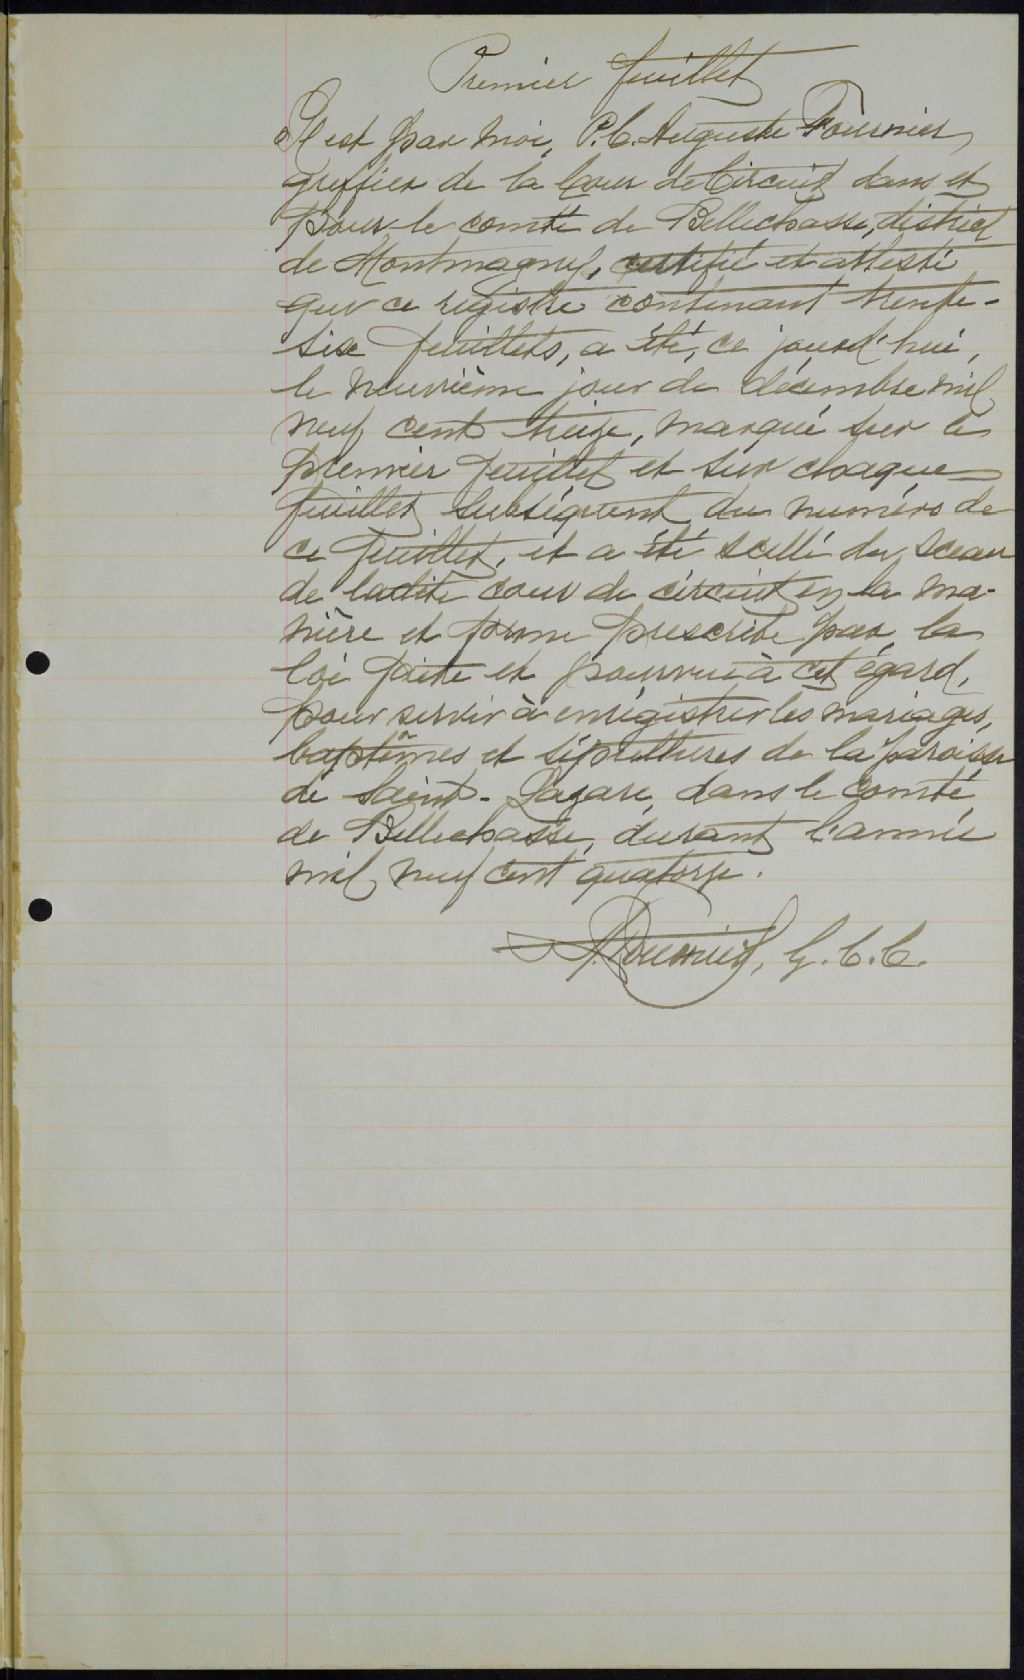 Premier feuillet
Il est par moi, P. C. Auguste Fournier,
greffier de la Cour de Circuit dans et
pour le comté de Bellechasse, district
de Montmagny, certifié et attesté
que ce registre contenant trente-
six feuillets, a été, ce jourd'hui,
le neuvième jour de décembre mil
neuf cent treize, marqué sur le
premier feuillet et sur chaque
feuillet subséquent du numéro de
ce feuillet, et a été scellé du sceau
de ladite cour de circuit en la ma-
nière et forme prescrite par la
loi faite et pourvue à cet égard,
pour servir à enrégistrer les mariages,
baptêmes et sépultures de la paroisse
de Saint-Lazare, dans le comté
de Bellechasse, durant l'année
mil neuf cent quatorze.
A. Fournier, G. C. C.